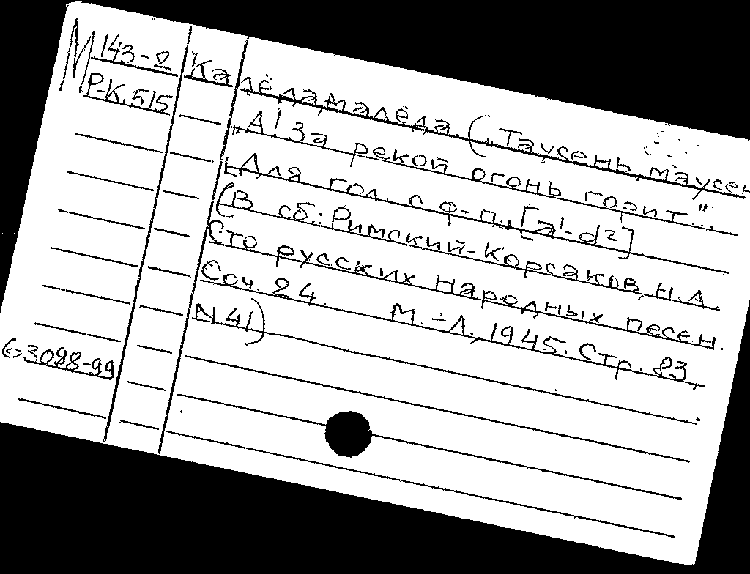 М 143-2
Р-К.515
Калёда, малёда. („Таусень, таусень
„А! За рекой огонь горит".
Для гол. с ф-п. [a¹-d²]
(В сб.: Римский-Корсаков, Н.А.
Сто русских народных песен.
Соч. 24. М.-Л., 1945. Стр. 83,
N 41)
63088-99